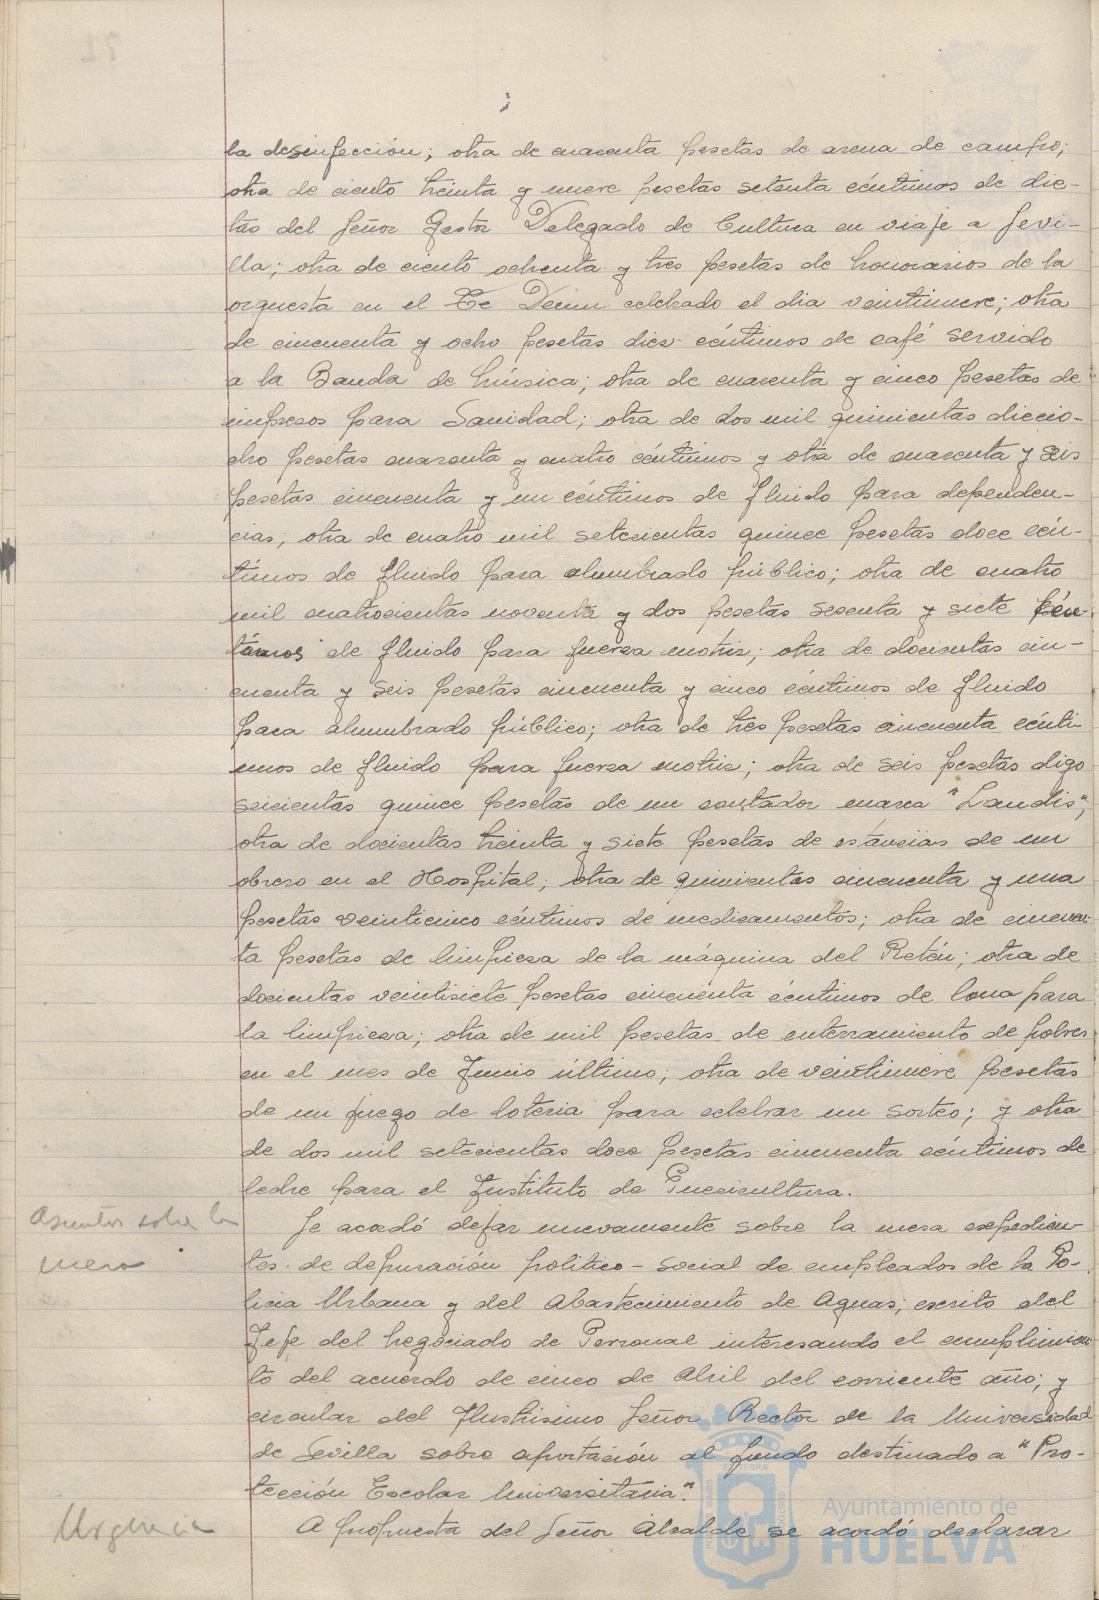 la desinfección; otra de cuarenta pesetas de arena de campo;
otra de ciento treinta y nueve pesetas setenta céntimos de die-
tas del Señor Gestor Delegado de Cultura en viaje a Sevi-
lla; otra de ciento ochenta y tres pesetas de honorarios de la
orquesta en el Te Deum celebrado el dia veintinueve; otra
de cincuenta y ocho pesetas diez céntimos de café servido
a la Banda de Música; otra de cuarenta y cinco pesetas de
impresos para Sanidad; otra de dos mil quinientas diecio-
cho pesetas cuarenta y cuatro céntimos y otra de cuarenta y seis
pesetas cincuenta y un céntimos de fluido para dependen-
cias; otra de cuatro mil setecientas quince pesetas doce cén-
timos de fluido para alumbrado público; otra de cuatro
mil cuatrocientas noventa y dos pesetas sesenta y siete cén-
timos de fluido para fuerza motriz; otra de docientas cin-
cuenta y seis pesetas cincuenta y cinco céntimos de fluido
para alumbrado público; otra de tres pesetas cincuenta cénti-
mos de fluido para fuerza motriz; otra de seis pesetas digo
seicientas quince pesetas de un contador marca "Landis";
otra de docientas treinta y siete pesetas de estancias de un
obrero en el Hospital; otra de quinientas cincuenta y una
pesetas veinticinco céntimos de medicamentos; otra de cincuen-
ta pesetas de limpieza de la máquina del Retén; otra de
docientas veintisiete pesetas cincuenta céntimos de lona para
la limpieza; otra de mil pesetas de enterramiento de pobres
en el mes de Junio último; otra de veintinueve pesetas
de un juego de loteria para celebrar un sorteo; y otra
de dos mil setecientas doce pesetas cincuenta céntimos de
leche para el Instituto de Puericultura.
Asuntos sobre la
mesa
Se acordó dejar nuevamente sobre la mesa expedien-
tes de depuración politico-social de empleados de la Po-
licia Urbana y del Abastecimiento de Aguas; escrito del
Jefe del Negociado de Personal interesando el cumplimien-
to del acuerdo de cinco de Abril del corriente año; y
circular del Ilustrisimo Señor Rector de la Universidad
de Sevilla sobre aportación al fondo destinado a "Pro-
tección Escolar Universitaria".
Urgencia
A propuesta del Señor Alcalde se acordó declarar
Ayuntamiento de
HUELVA